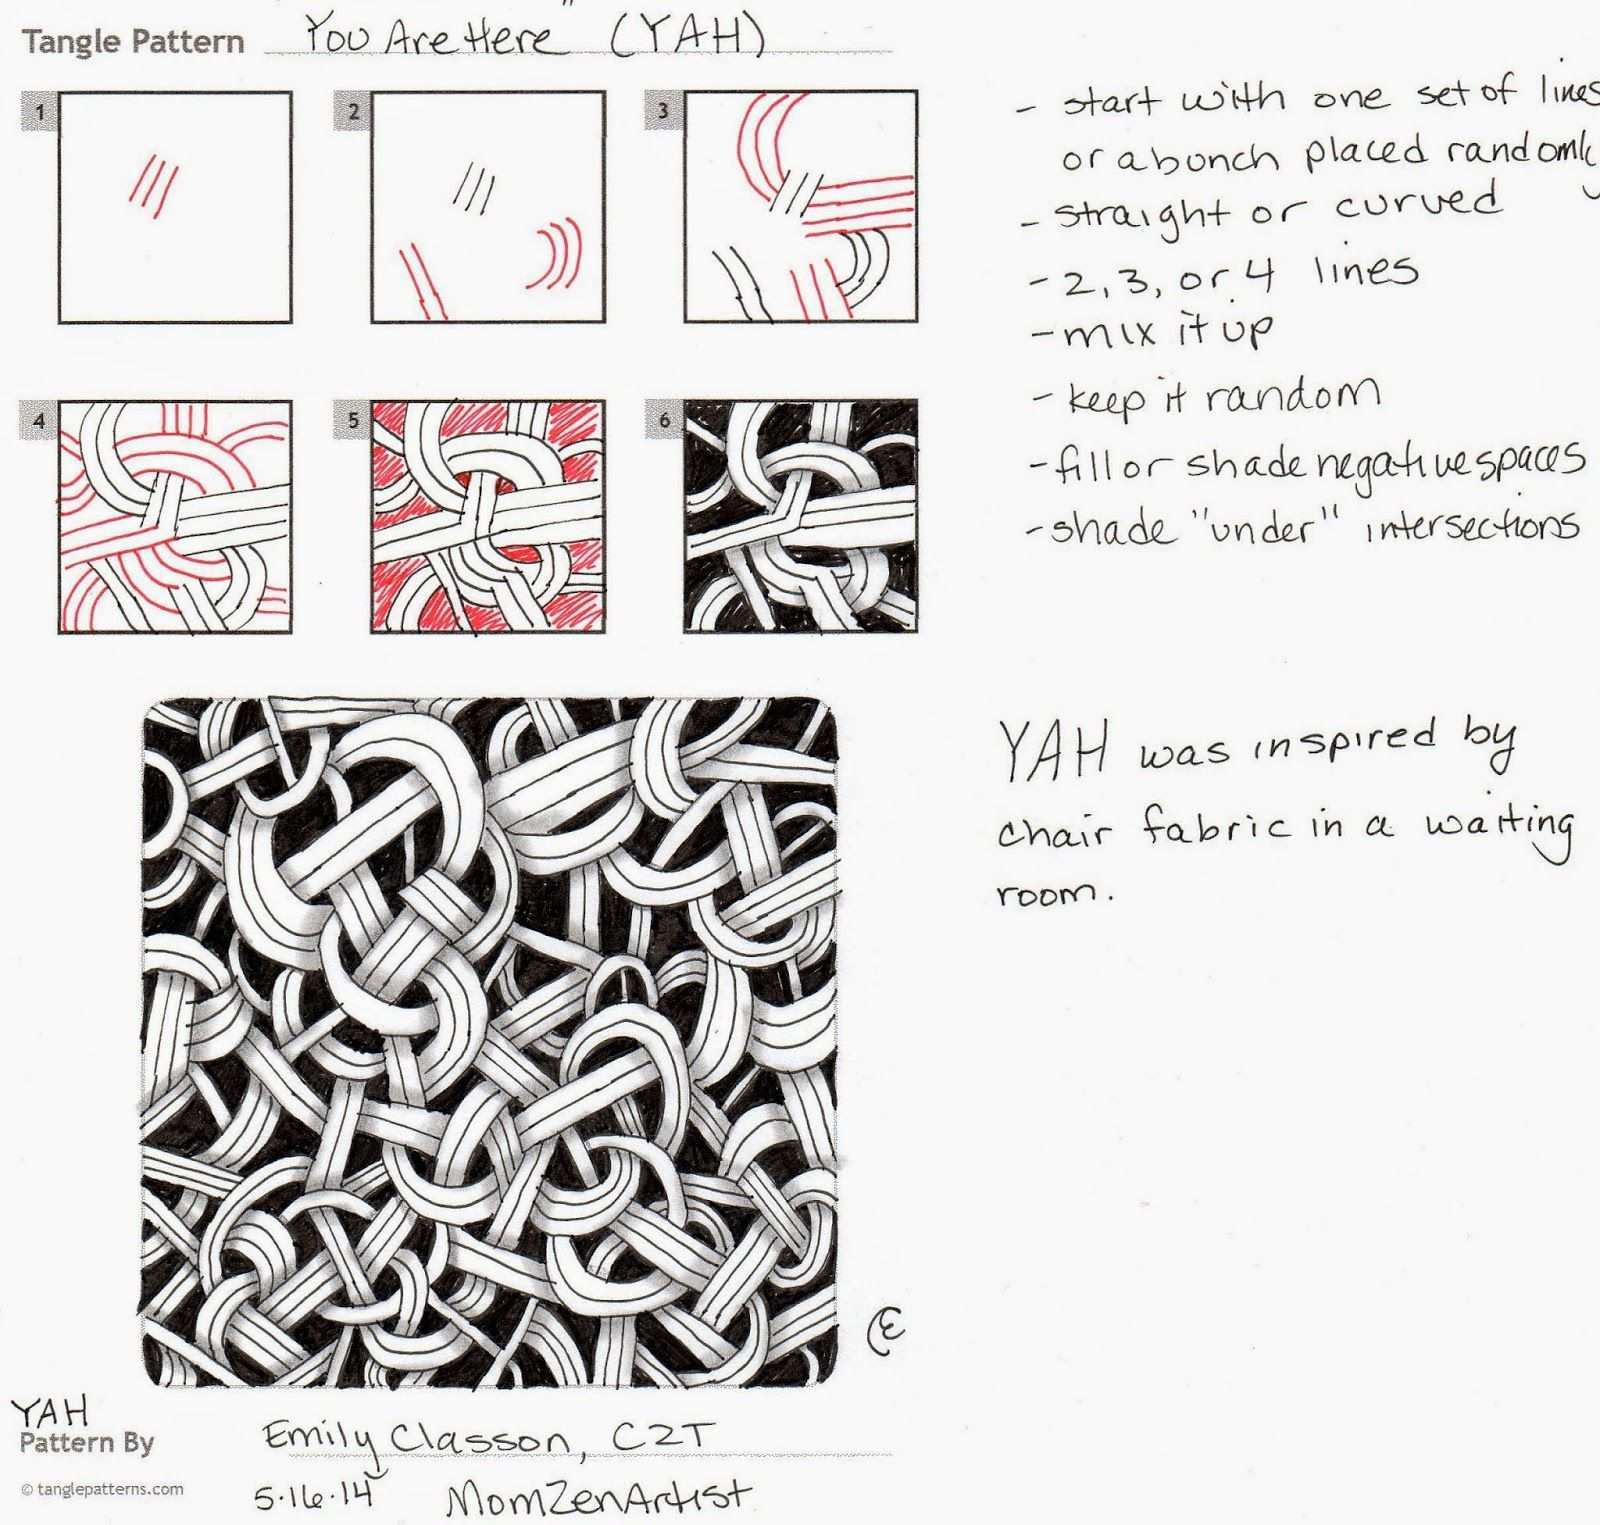 Tangle Pattern You Are Here" (YAH)
1
2
3
4
5
6
- start with one set of lines
or a bunch placed randomly
- straight or curved
- 2, 3, or 4 lines
- mix it up
- keep it random
- fill or shade negative spaces
- shade "under" intersections
YAH was inspired by
chair fabric in a waiting
room.
YAH
Pattern By Emily Classon, CZT
© tanglepatterns.com
5.16.14 MomZenArtist